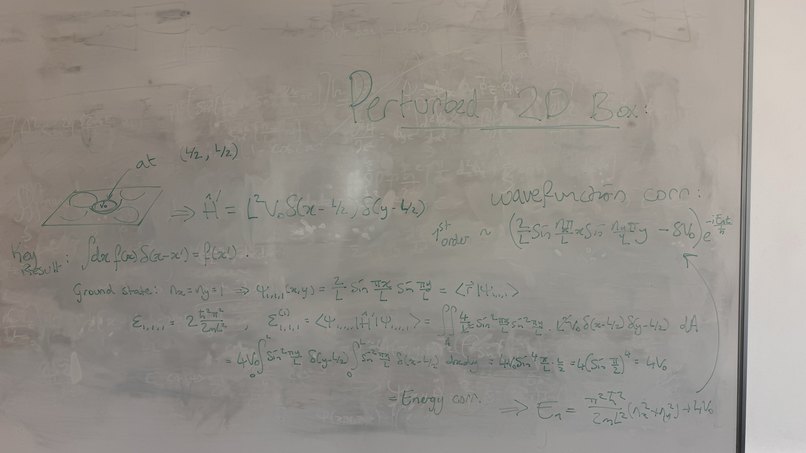 Perturbed 2D Box:
at (L/2, L/2)
V₀
⇒ Ĥ' = L²V₀δ(x-L/2)δ(y-L/2)
wavefunction corr:
1st order ~ (2/L sin nₓπ/L x sin n_yπ/L y - 8V₀) e^
Key Result: ∫dx f(x) δ(x-x') = f(x').
Ground state: nₓ=n_y=1 ⇒ Ψ₁,₁(x,y) = 2/L sin πx/L sin πy/L = <r⃗|Ψ₁,₁>
ε₁,₁ = 2 ħ²π²/2mL² , ε₁,₁⁽¹⁾ = <Ψ₁,₁|Ĥ'|Ψ₁,₁> = ∬ 4/L² sin² πx/L sin² πy/L . L²V₀ δ(x-L/2) δ(y-L/2) dA
= 4V₀ ∫₀ᴸ sin² πy/L δ(y-L/2) ∫₀ᴸ sin² πx/L δ(x-L/2) dxdy = 4V₀ sin⁴ π/L . L/2 = 4(sin π/2)⁴ = 4V₀
= Energy corr. ⇒ Eₙ = π²ħ²/2mL² (nₓ²+n_y²) + 4V₀